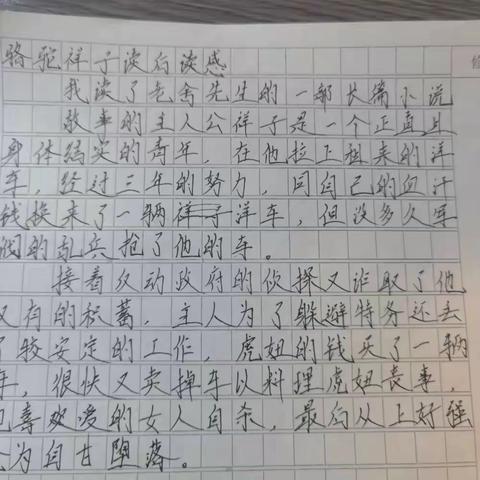 骆驼祥子读后读感
我读了老舍先生的一部长篇小说
故事的主人公祥子是一个正直且
身体结实的青年，在他拉上租来的洋
车，经过三年的努力，同自己的血汗
钱换来了一辆祥子洋车，但没多久军
阀的乱兵抢了他的车。
接着反动政府的侦探又诈取了他
仅有的积蓄，主人为了躲避特务还丢
了较安定的工作，虎妞的钱买了一辆
车，很快又卖掉车以料理虎妞丧事，
他喜欢爱的女人自杀，最后从上好强
沦为自甘堕落。